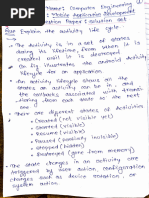 Name: Computer Engineering ①
: Mobile Application Development
Question Paper & solution set
Que Explain the activity life cycle.
→
• The activity is in a set of states
during its lifetime, from when it is
created until it is destroyed
• On fig illustrates the android activity
lifecycle for an application
• An activity lifecycle shows all the
states an activity can be in, and
the
from each state to the next
• There are different states of Activities
• Created (not visible)
• Started (visible)
• Resumed (visible)
• Paused (partially invisible)
• Stopped (hidden)
• Destroyed (gone from memory)
• The state changes in an activity are
triggered by user action, configuration
changes such as device rotation, or
system action.